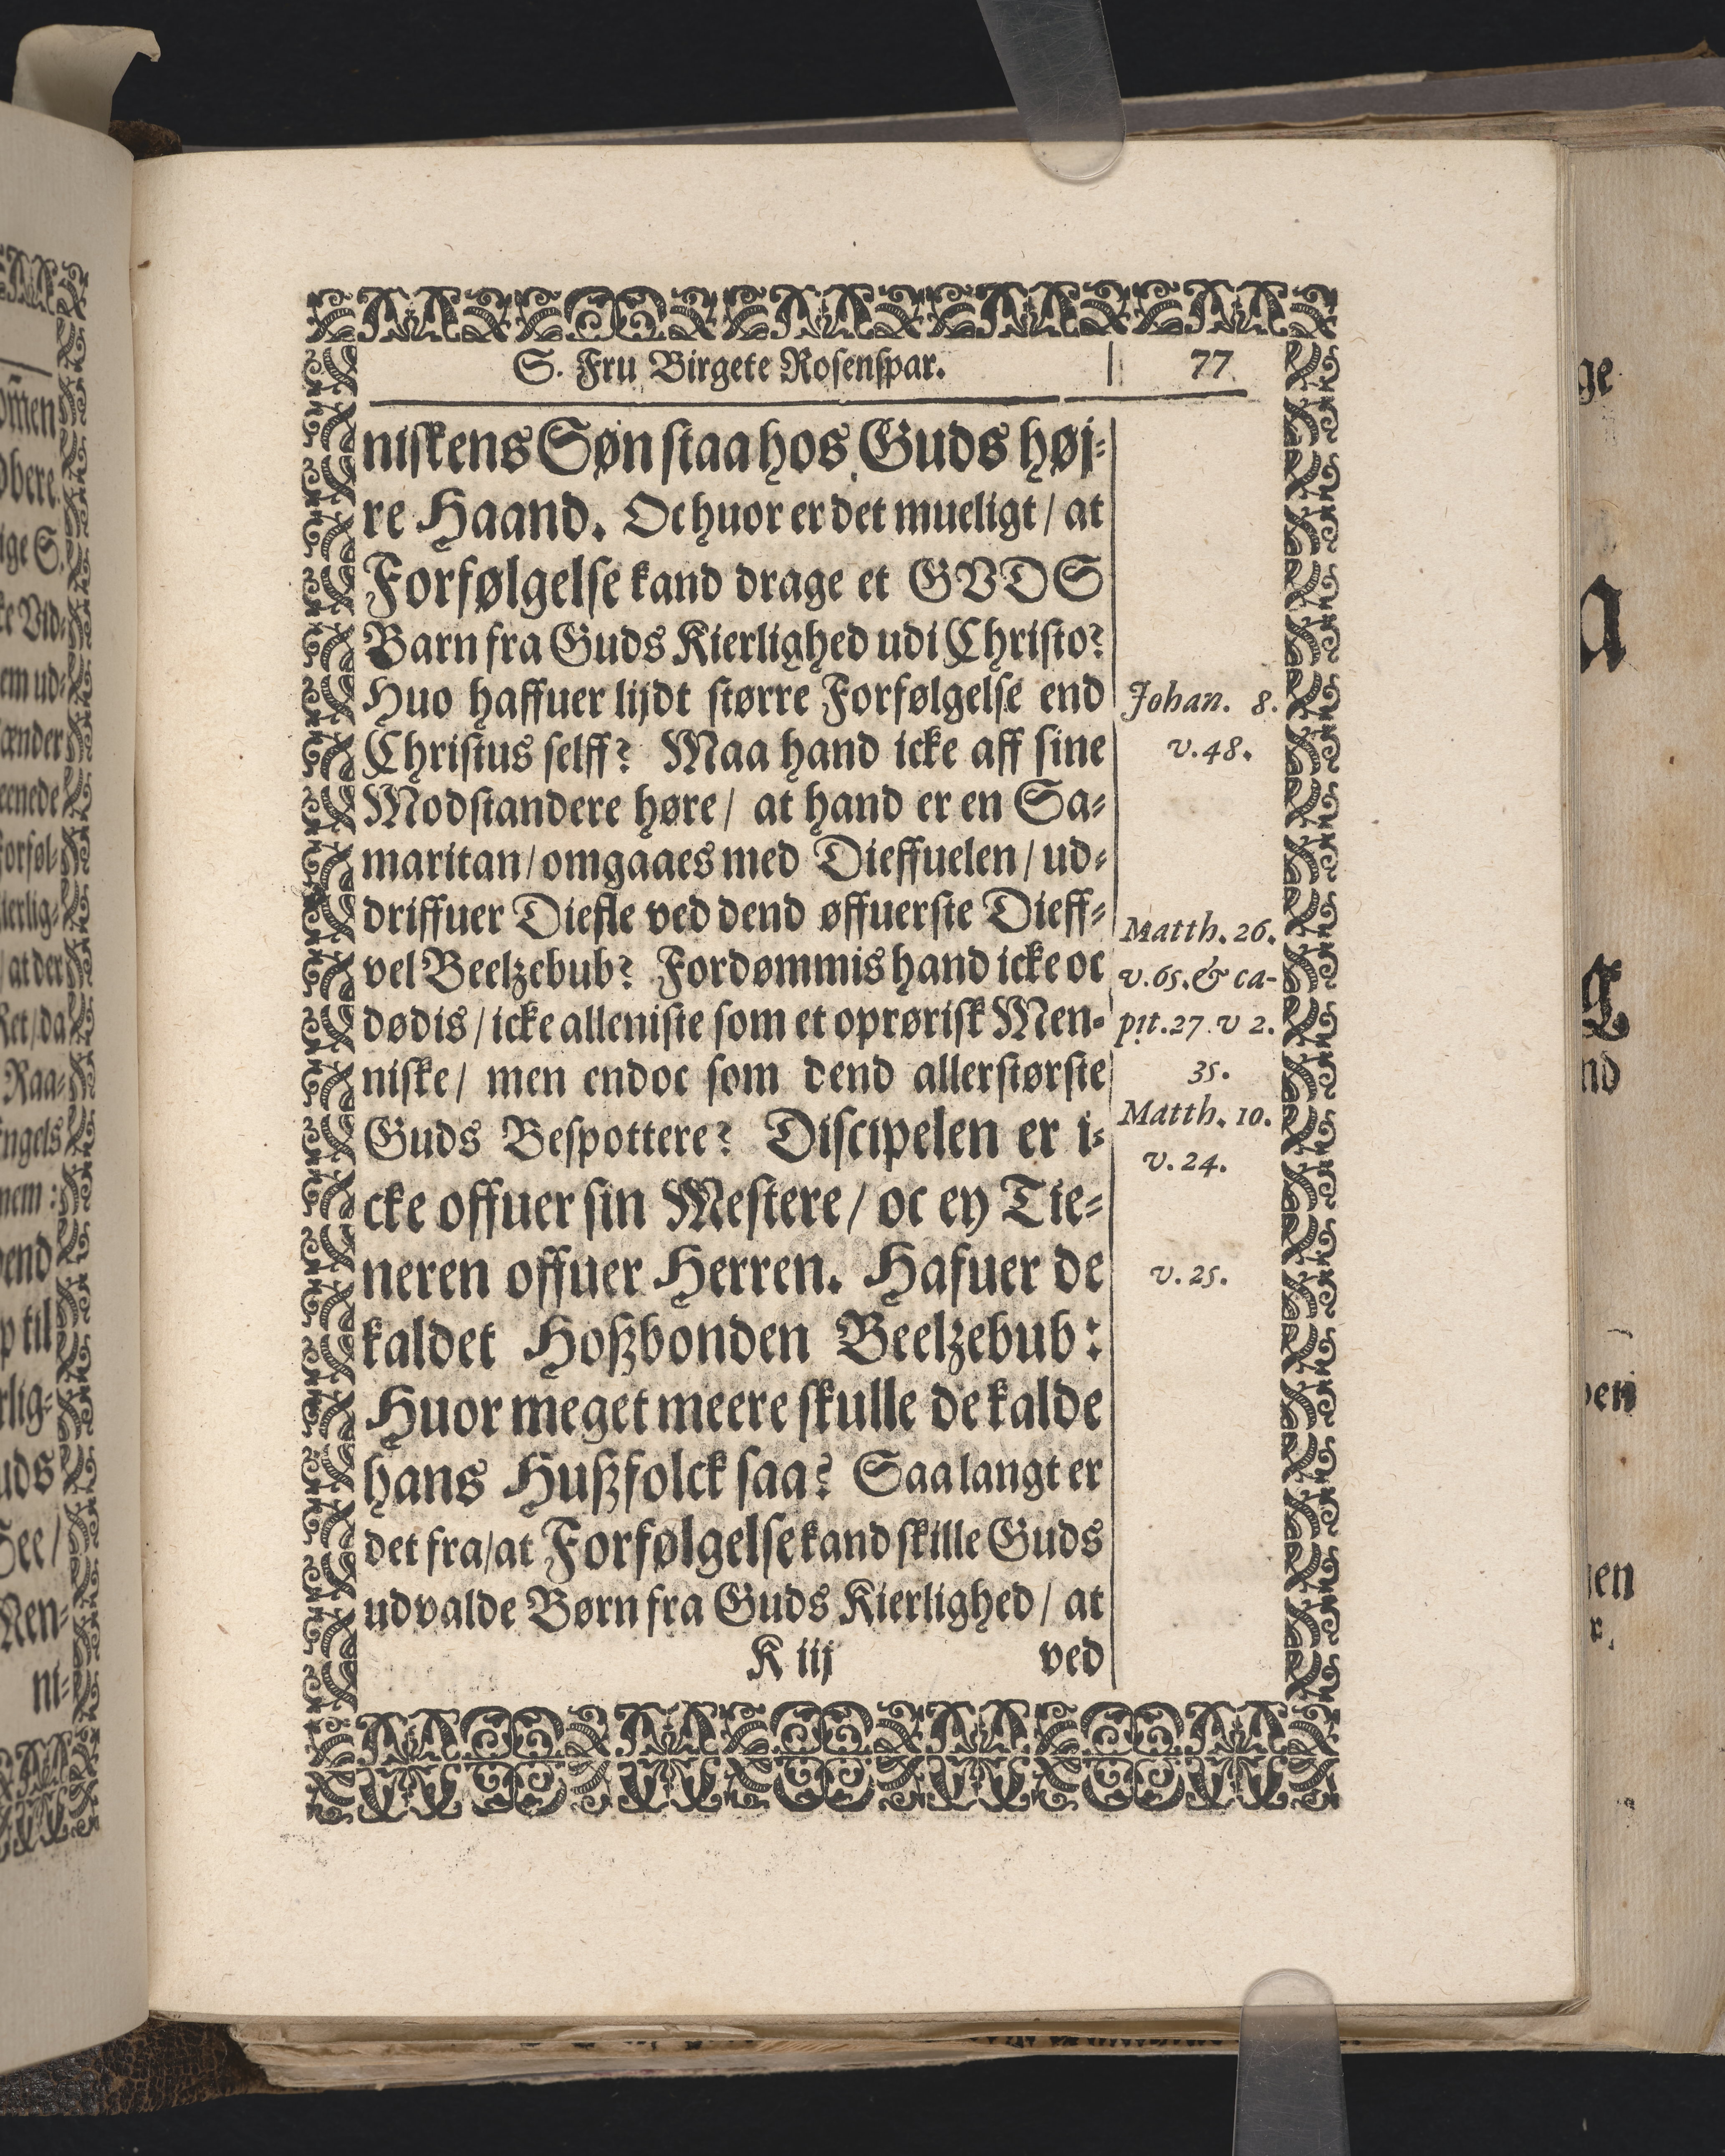 S. Fru Birgete Rosenspar. 77
niskens Søn staa hos Guds høj-
re Haand. Oc huor er det mueligt / at
Forfølgelse kand drage et GVDS
Barn fra Guds Kierlighed udi Christo?
Huo haffuer lijdt større Forfølgelse end
Christus selff? Maa hand icke aff sine
Modstandere høre / at hand er en Sa-
maritan / omgaaes med Dieffuelen / ud-
driffuer Diefle ved dend øffuerste Dieff-
vel Beelzebub? Fordømmis hand icke oc
dødis / icke alleniste som et oprørisk Men-
niske / men endoc som dend allerstørste
Guds Bespottere? Discipelen er i-
cke offuer sin Mestere / oc ey Tie-
neren offuer Herren. Hafuer de
kaldet Hoßbonden Beelzebub:
Huor meget meere skulle de kalde
hans Hußfolck saa? Saa langt er
det fra / at Forfølgelse kand skille Guds
udvalde Børn fra Guds Kierlighed / at
K iij ved
Johan. 8.
v. 48.
Matth. 26.
v. 65. & ca-
pit. 27 v 2.
35.
Matth. 10.
v. 24.
v. 25.